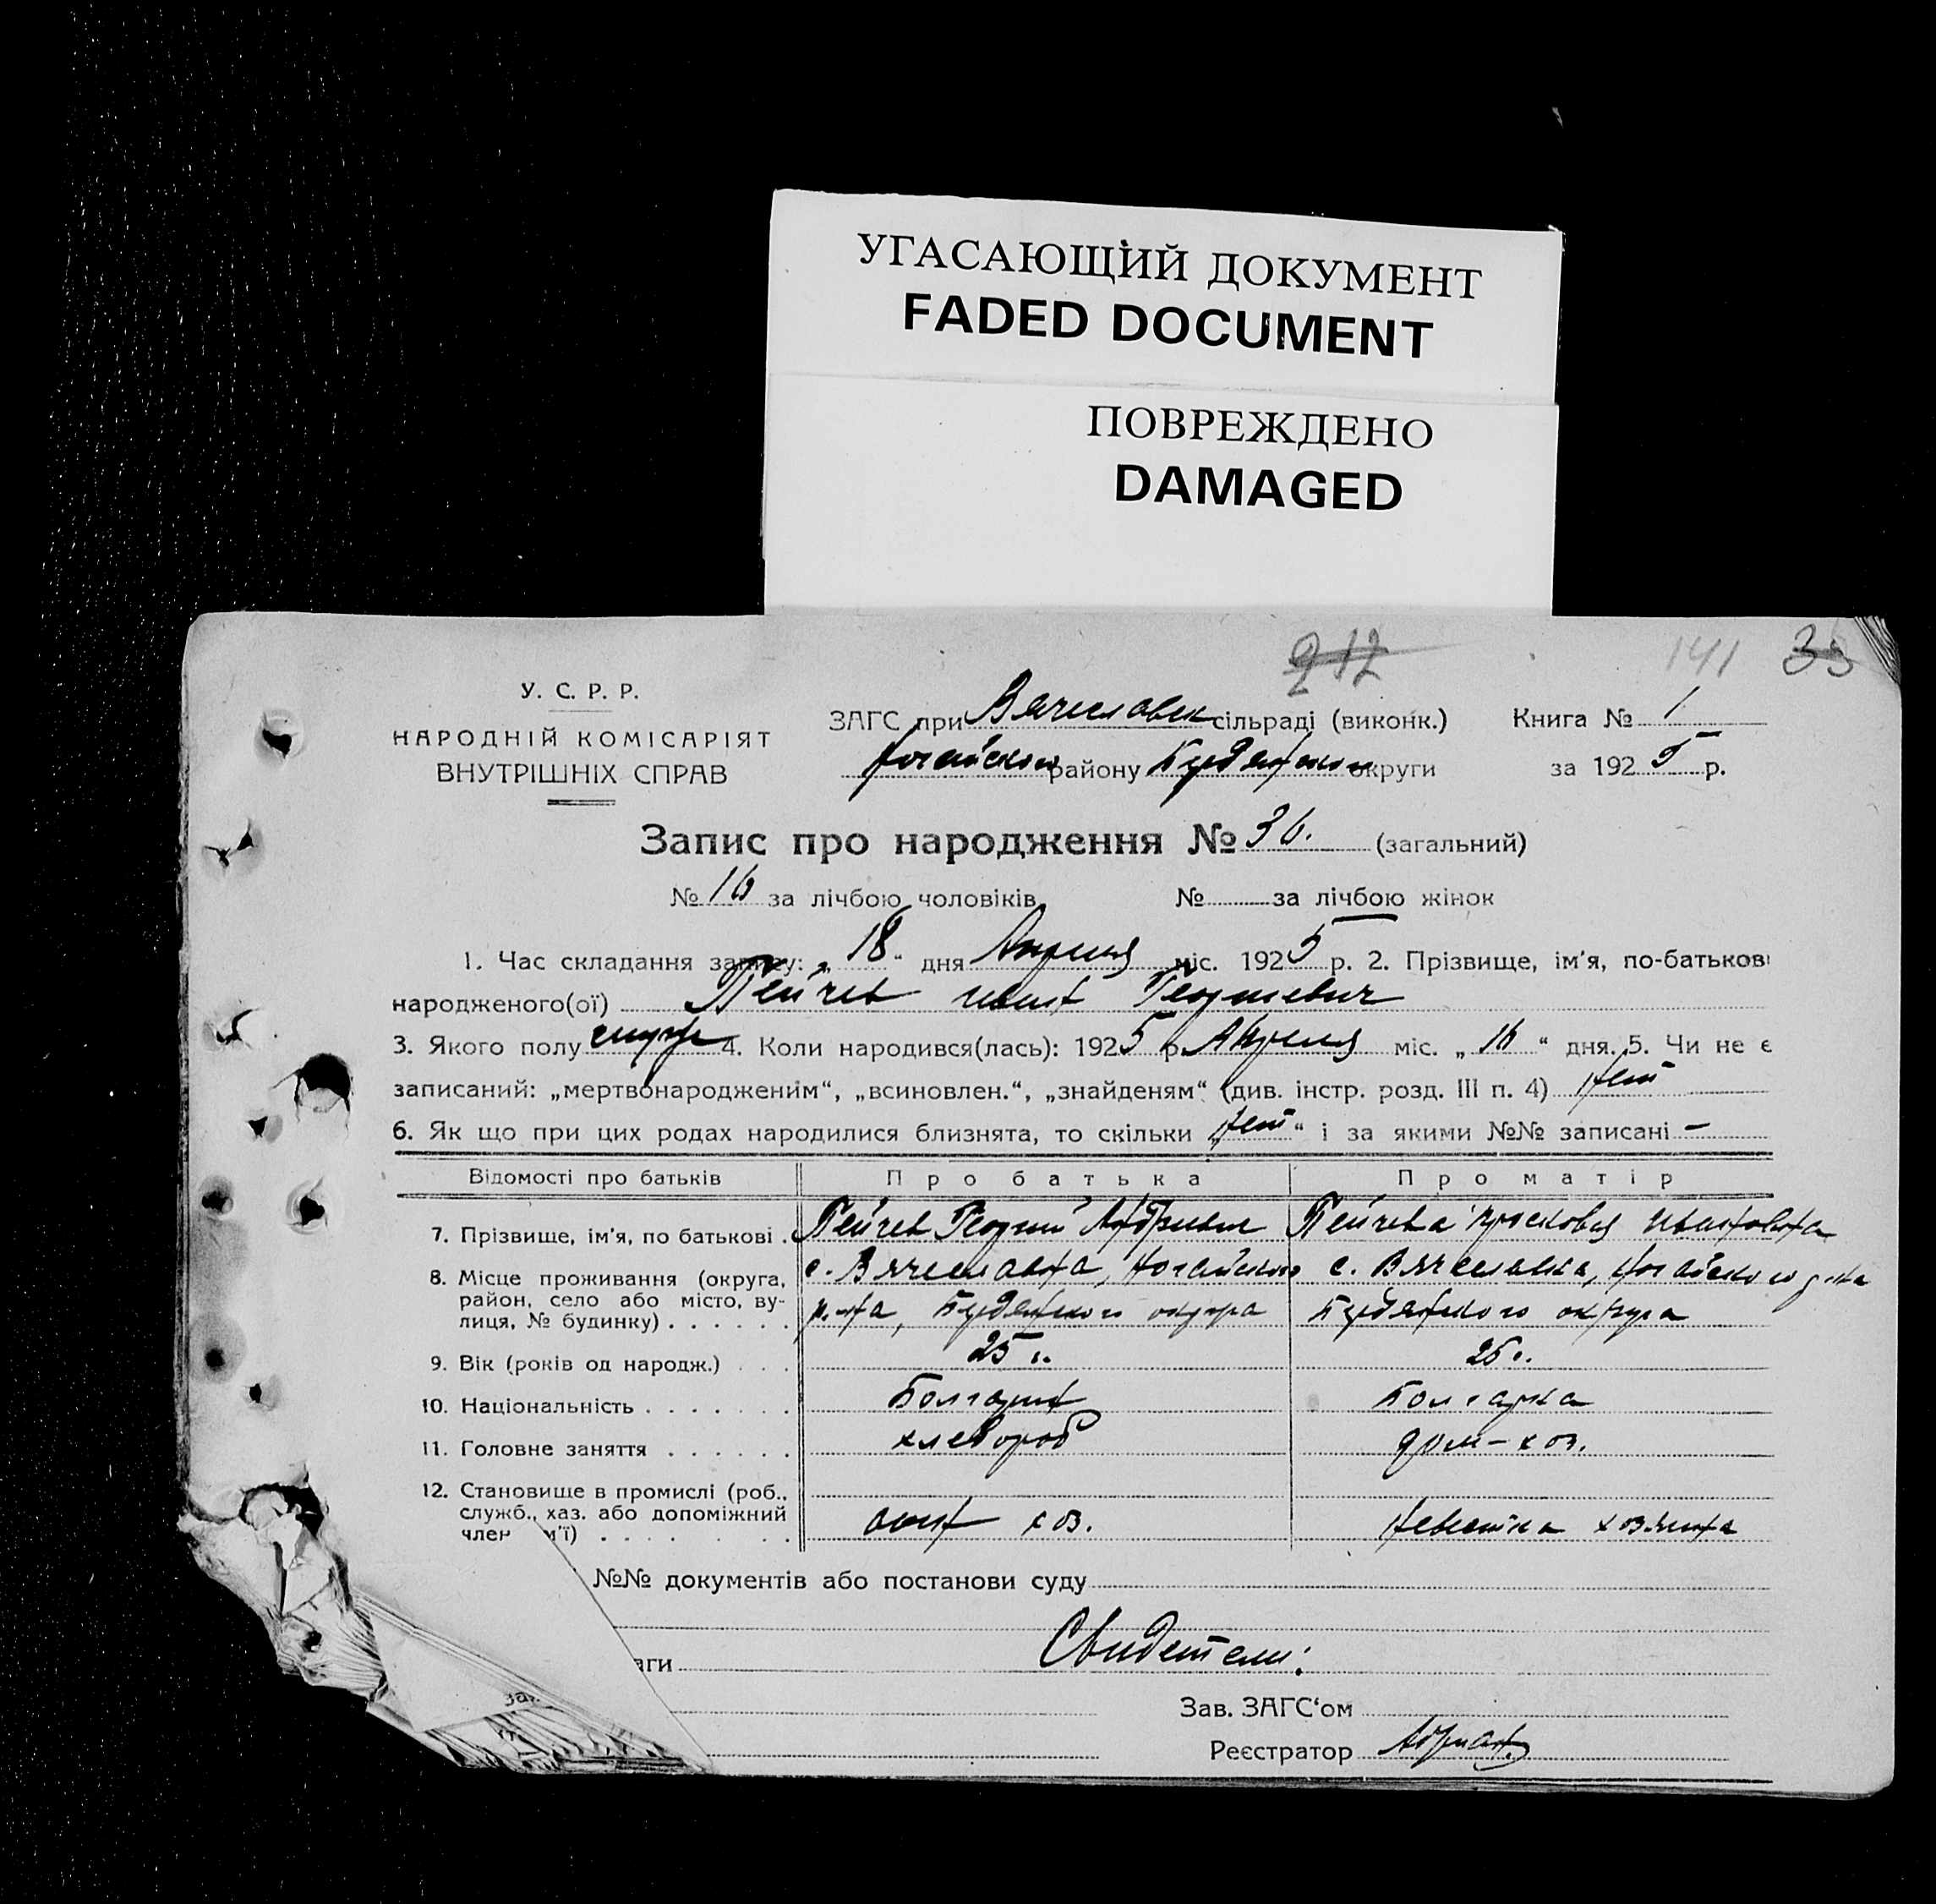 УГАСАЮЩИЙ ДОКУМЕНТ
FADED DOCUMENT
ПОВРЕЖДЕНО
DAMAGED
212 141 33
У. С. Р. Р.
НАРОДНІЙ КОМІСАРІЯТ
ВНУТРІШНІХ СПРАВ
ЗАГС при Вячеславк сільраді (виконк.) Книга № 1
Ногайского району Бердянской округи за 1925 р.
Запис про народження № 36. (загальний)
№ 16 за лічбою чоловіків № за лічбою жінок
1. Час складання запису: „18“ дня Апреля міс. 1925 р. 2. Прізвище, ім'я, по-батькові
народженого(ої) Пейчев Иван Георгиевич
3. Якого полу муж 4. Коли народився(лась): 1925 р. Апреля міс. „16“ дня. 5. Чи не є
записаний: „мертвонародженим“, „всиновлен.“, „знайденям“ (див. інстр. розд. III п. 4) нет
6. Як що при цих родах народилися близнята, то скільки „нет“ і за якими №№ записані –
Відомості про батьків Про батька Про матір
7. Прізвище, ім'я, по батькові . Пейчев Георгий Пейчева Прасковья Ивановна
8. Місце проживання (округа, район, село або місто, вулиця, № будинку) . . . . . .
с. Вячеславка, Ногайского
р-на, Бердянского округа
с. Вячеславка, Ногайского р-на
Бердянского округа
9. Вік (років од народж.) . . . 25 г. 25 г.
10. Національність . . . . . . . Болгарин Болгарка
11. Головне заняття . . . . . . хлебороб дом-хоз.
12. Становище в промислі (роб.,
служб., хаз. або допоміжний
член м'ї) . . . . . . . хоз. невестка хозяина
№№ документів або постанови суду
аги Свидетели:
Зав. ЗАГС‘ом
Реєстратор